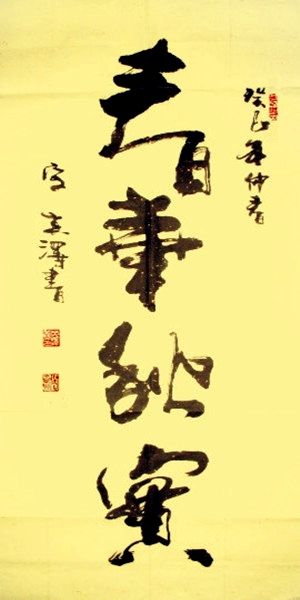 癸巳年仲春
春華秋實
澤書